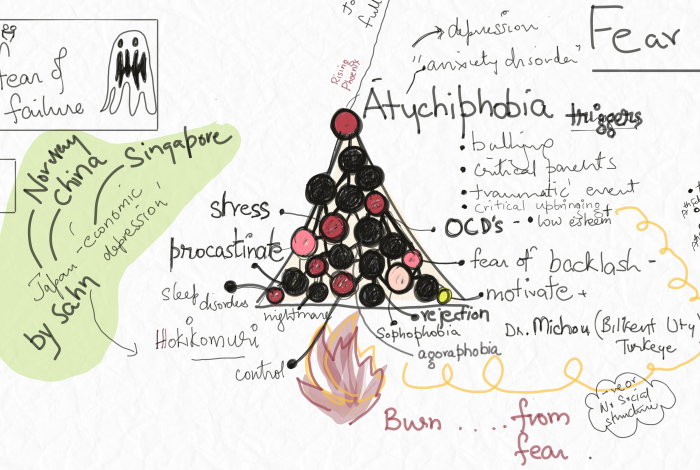 fear of
failure
Norway
China
Singapore
Japan - economic
depression
by Sahn
Hokikomuri
Rising
Phoenix
full
depression
"anxiety disorder"
Fear
Atychiphobia
triggers
• bullying
• critical parents
• traumatic event
• critical upbringing
• low esteem
OCD's -
fear of backlash -
motivate +
stress
procastinate
sleep disorders
nightmare
control
rejection
Sophophobia
agoraphobia
Dr. Michou (Bilkent Uty)
Turkeye
No Social
structure
Burn .... from
fear .